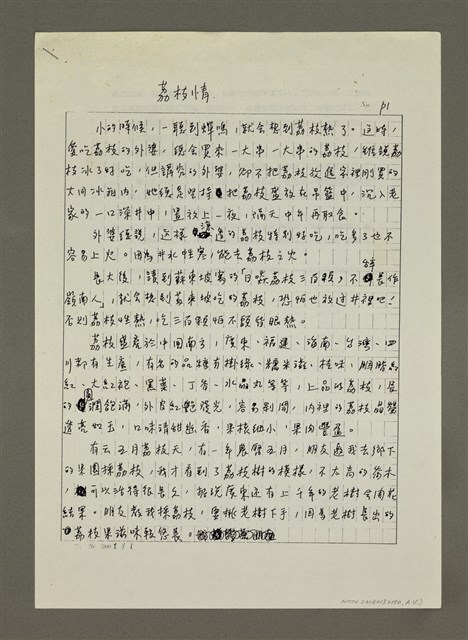 荔枝情
No. P1
小的時候,一聽到蟬鳴,就会想到荔枝熟了。這時,
愛吃荔枝的外婆,總会買來一大串一大串的荔枝,雖說荔
枝冰了好吃,但講究的外婆,卻不把荔枝放進家裡的
大同冰箱內,她總是堅持把荔枝盛放在吊籃中,沉入老
家的一口深井中,置放上一夜,隔天中午再取食。
外婆總說,這樣浸過的荔枝特別好吃,吃多了也不
容易上火。因為井水性寒,能去荔枝之火。
長大後,讀到蘇東坡寫的「日啖荔枝三百顆,不辭長作
嶺南人」,就会想到蘇東坡吃的荔枝,恐怕也放过井裡吧!
否則荔枝性熱,吃三百顆怕不頭發眼熱。
荔枝盛產於中國南方,廣東、福建、海南、台灣、四
川都有生產,有名的品種有掛綠、糯米滋、桂味、胭脂
紅、大紅袍、黑葉、丁香、水晶丸等等,上品的荔枝,長
的圓潤飽滿,外皮紅艷發光,容易剝開,內裡的荔枝晶瑩
透亮如玉,口味清甜幽香,果核細小,果肉豐盈。
有云五月荔枝天,有一年農曆五月,朋友邀我去鄉下
的果園採荔枝,我才看到了荔枝樹的模樣,不太高的喬木,
可以活得很長久,據說廣東还有上千年的老樹会開花
結果。朋友教我採荔枝,要挑老樹下手,因為老樹長出的
荔枝果滋味較悠長。